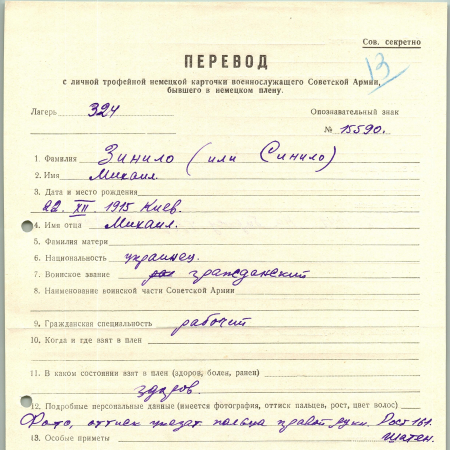 Сов. секретно
13
ПЕРЕВОД
с личной трофейной немецкой карточки военнослужащего Советской Армии,
бывшего в немецком плену.
Лагерь 324 Опознавательный знак
№ 15590.
1. Фамилия Зинило (или Синило)
2. Имя Михаил.
3. Дата и место рождения
22. XII. 1915 Киев.
4. Имя отца Михаил.
5. Фамилия матери
6. Национальность украинец.
7. Воинское звание гражданский
8. Наименование воинской части Советской Армии
9. Гражданская специальность рабочий
10. Когда и где взят в плен
11. В каком состоянии взят в плен (здоров, болен, ранен)
здоров.
12. Подробные персональные данные (имеется фотография, оттиск пальцев, рост, цвет волос)
Фото, оттиск указат пальца правой руки. Рост 161.
13. Особые приметы шатен.